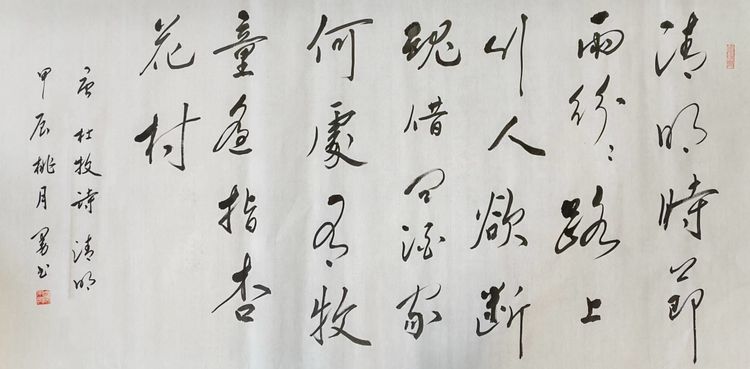 清明時節
雨紛〻路上
行人欲斷
魂借問酒家
何處有牧
童遙指杏
花村
唐杜牧詩清明
甲辰桃月书